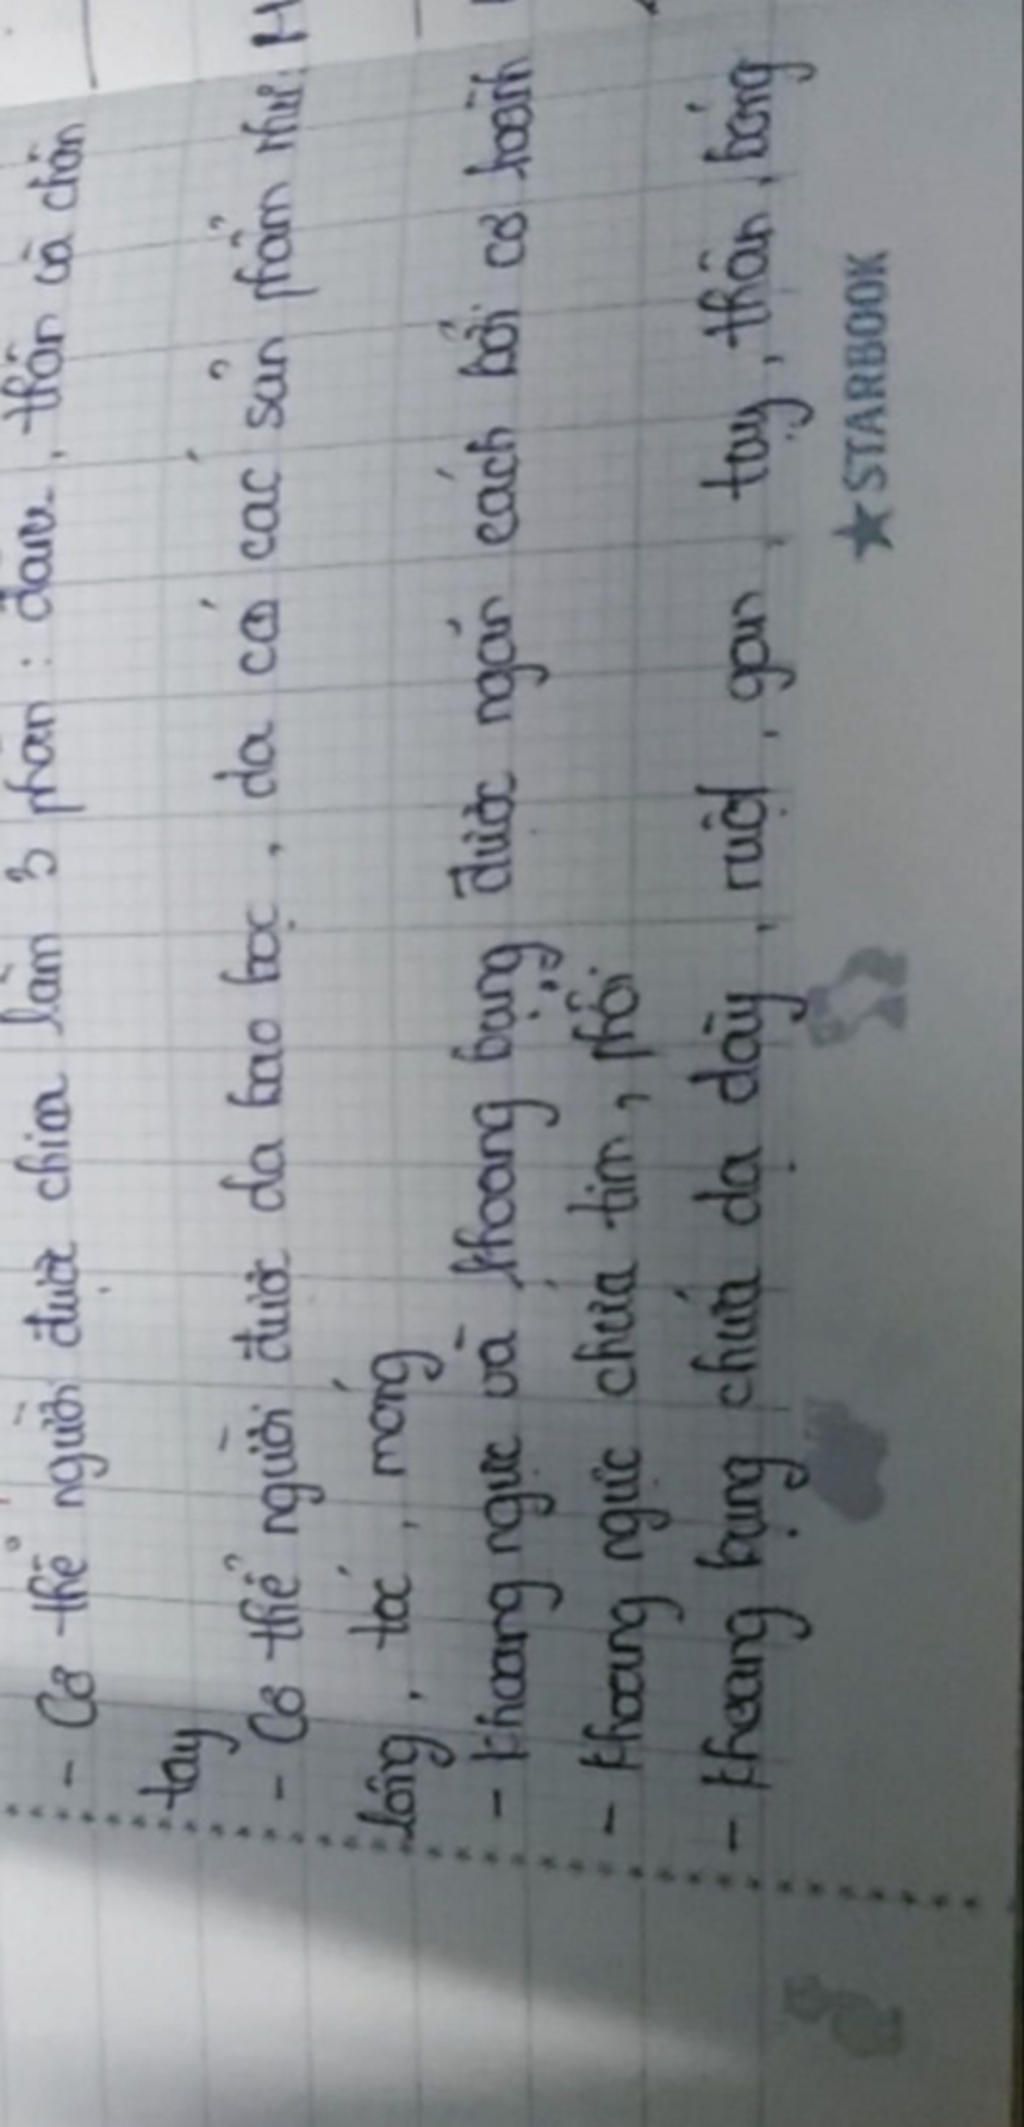 - Cơ thể người được chia làm 3 phần: đầu, thân và chân
tay
- Cơ thể người được da bao bọc, da có các sản phẩm như:
lông, tóc, móng
- Khoang ngực và khoang bụng được ngăn cách bởi cơ hoành
- Khoang ngực chứa tim, phổi
- Khoang bụng chứa dạ dày, ruột, gan, tụy, thận, bóng
★STARBOOK